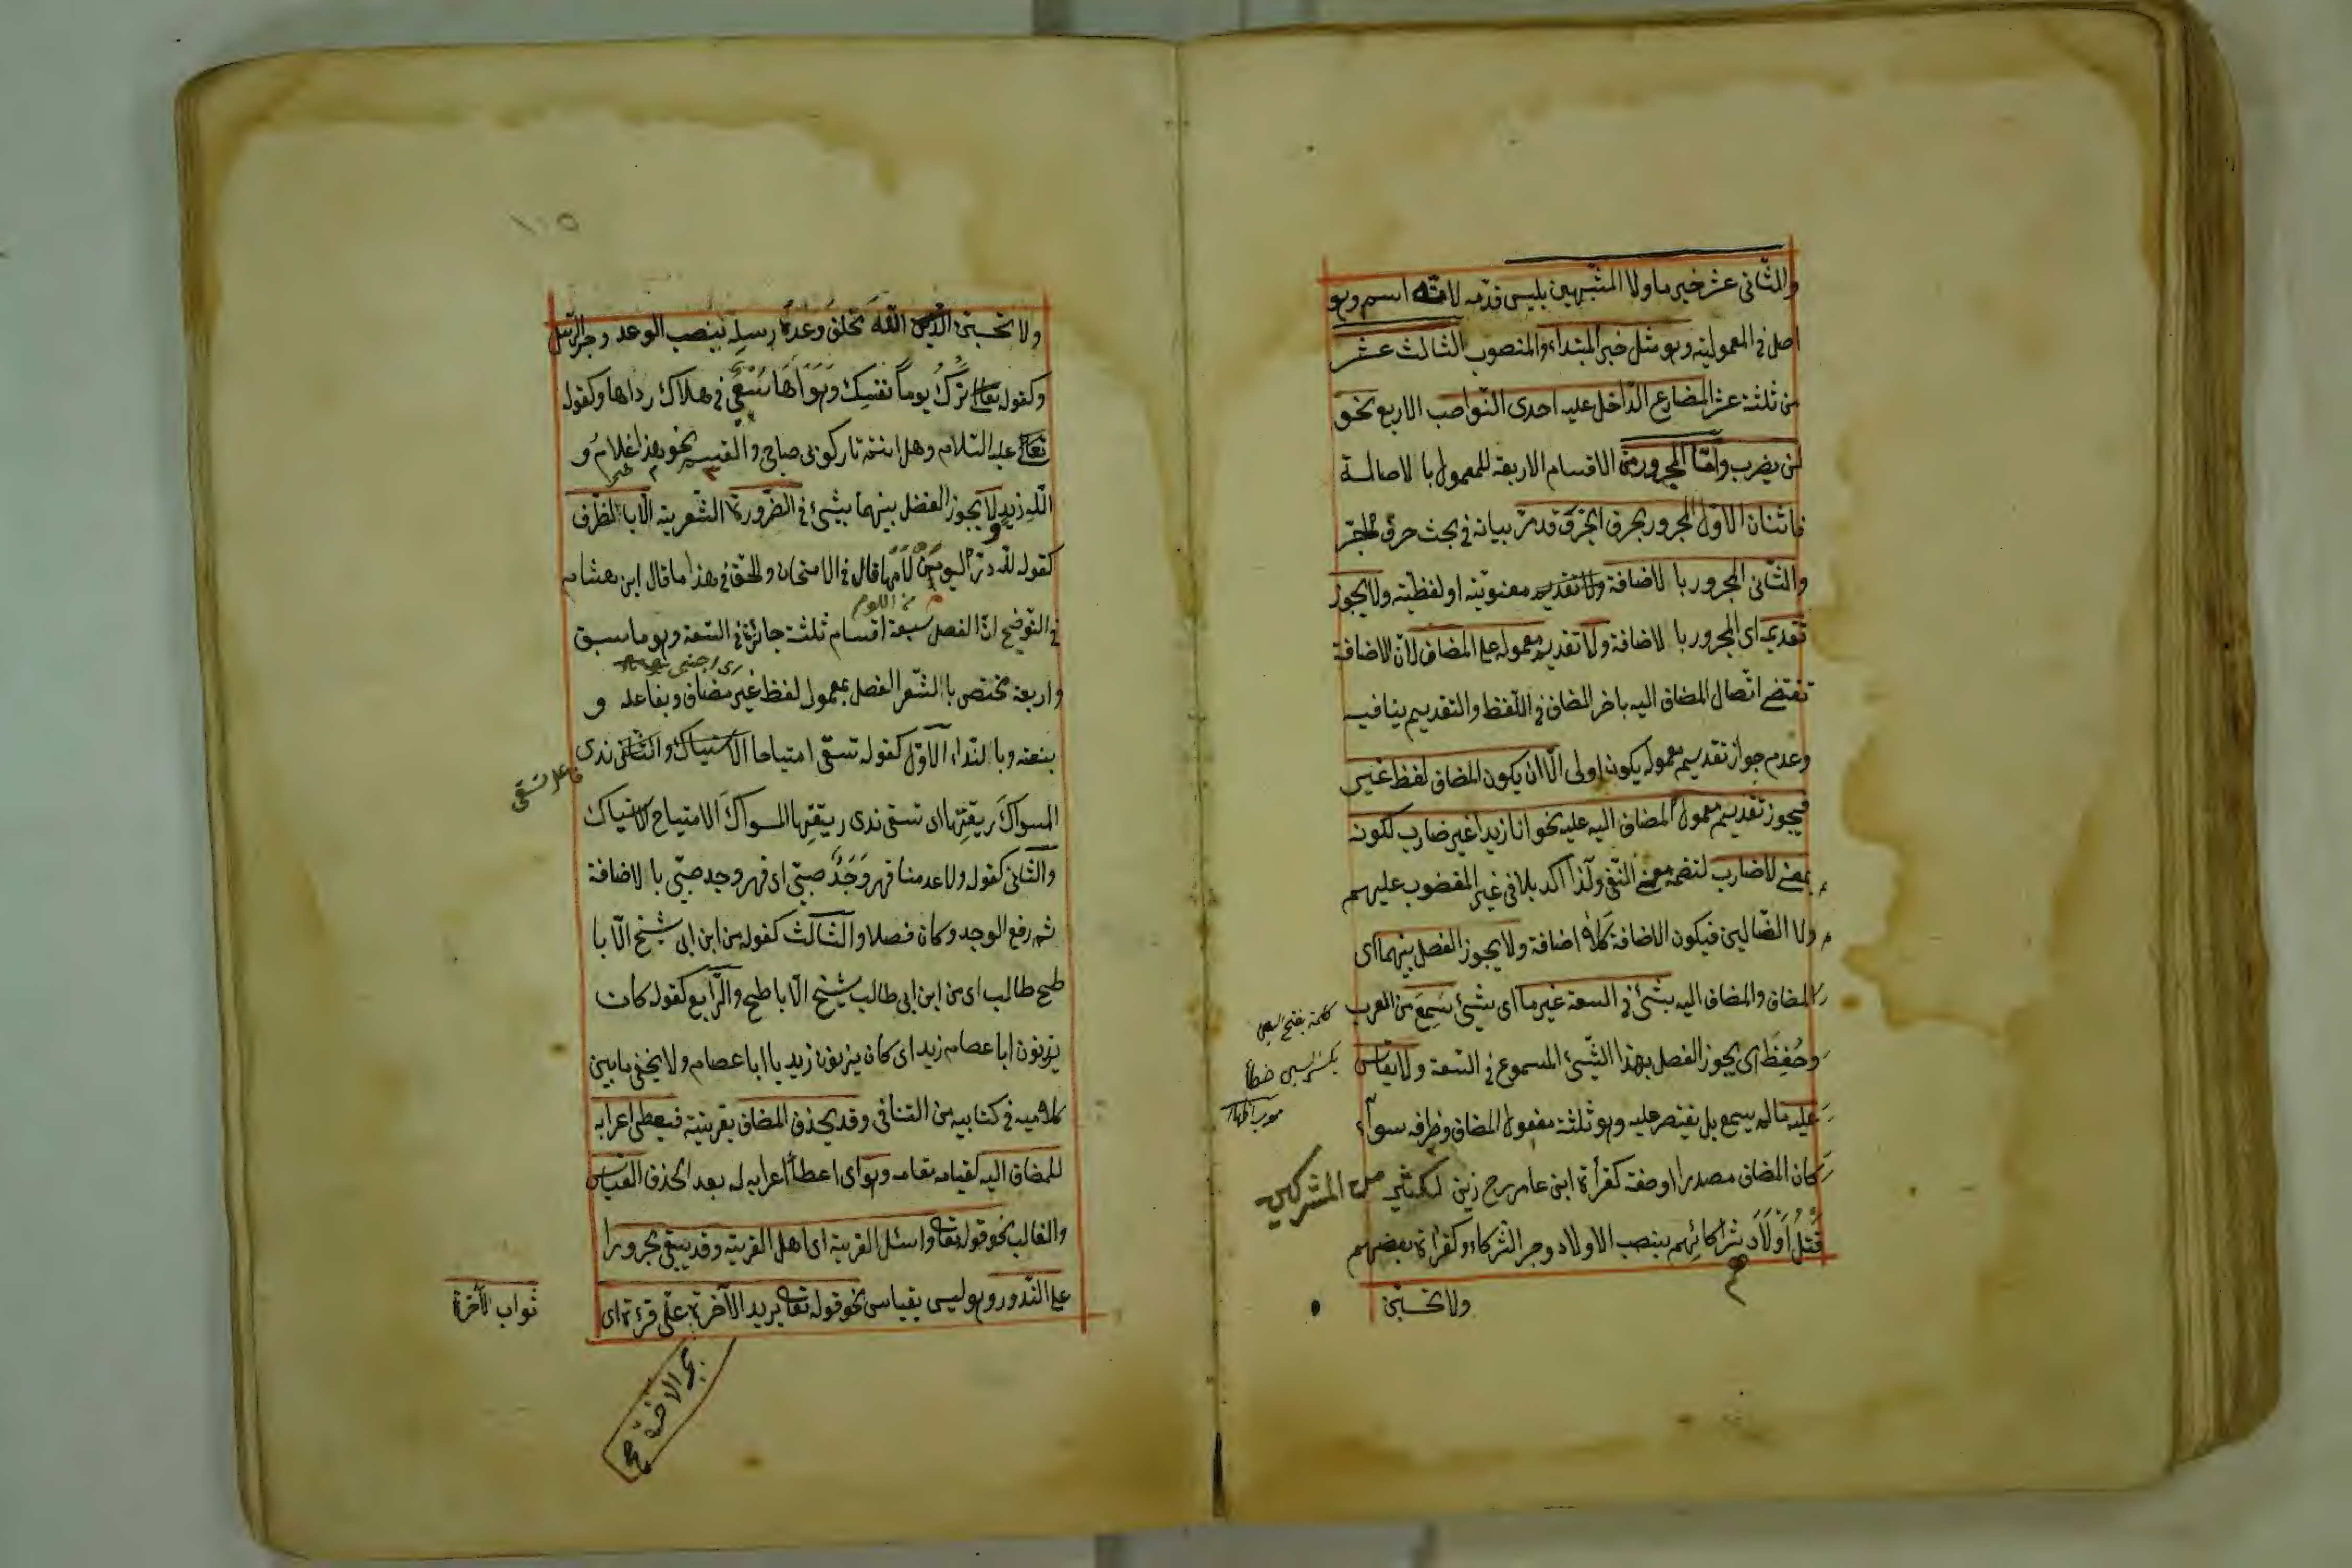 والثانى عشر خبر ما ولا المشبهين بليس قدمه لانه اسم وهو
اصل فى المعمولية وهو مثل خبر المبتداء والمنصوب الثالث عشر
من ثلثة عشر المضارع الداخل عليه احدى النواصب الاربع نحو
لن يضرب واما المجرور من الاقسام الاربعة للمعمول با لاصالة
فاثنان الاول المجرور بحرف الجر وقد مر بيانه فى بحث حرف الجر
والثانى المجرور با لاضافة معنوية او لفظية ولا يجوز
تقديمه اى المجرور با لاضافة ولا تقديم معموله على المضاف لان الاضافة
تقتضى اتصال المضاف اليه باخر المضاف فى اللفظ والتقديم ينافيه
وعدم جواز تقديم معموله يكون اولى الا ان يكون المضاف لفظ غير
فيجوز تقديم معمول المضاف اليه عليه نحو انا زيدا غير ضارب لكونه
بمعنى لا ضارب لتضمنه معنى النفى ولذا اكد بلا فى غير المغضوب عليهم
ولا الضالين فيكون الاضافة كلا اضافة ولا يجوز الفصل بينهما اى
المضاف والمضاف اليه بشئ فى السعة غير ما اى بشئ سمع من العرب
وحفظ اى يجوز الفصل بهذا الشئ المسموع فى السعة ولا يقاس
عليه ما لم يسمع بل يقتصر عليه وهو ثلثة مفعول المضاف وظرفه سواء
كان المضاف مصدرا او صفة كقرأة ابن عامر رح زين لكثير من المشركين
قتل اولاد شركائهم بنصب الاولاد وجر الشركاء وكقراة بعضهم
ولا تحسبن
١١٥
ولا تحسبن الله مخلف وعده رسله بنصب الوعد وجر الرسل
وكقوله ترك يوما نفسك وهواها سعى فى هلاك رداها وكقوله
عليه السلام وهل انتم تاركو لى صاحبى والقسم نحو هذا غلام و
الله زيد ولا يجوز الفصل بينهما بشئ فى الضرورة الشعرية الا با لظرف
كقوله لله در اليوم من لامها قال فى الامتحان والحق فى هذا ما قال ابن هشام
من اللوم
فى التوضيح ان الفصل سبعة اقسام ثلثة جائزة فى السعة وهو ما سبق
واربعة مختص با لشعر الفصل بمعمول لفظ غير مضاف وبفاعله و
بنعته وبا لنداء الاول كقوله تسقى امتياحا ندى
فاعل تسقى
المسواك ريقتها اى تسقى ندى ريقتها المسواك الامتياح الاستياك
والثانى كقوله ولا عدمنا قهر وجد صب اى قهر وجد صبى با لاضافة
ثم رفع الوجد وكان فصلا والثالث كقوله من ابن ابى شيخ الابا
طح طالب اى من ابن ابى طالب شيخ الاباطح والرابع كقوله كان
برذون ابا عصام زيد اى كان برذون زيد يا ابا عصام ولا يخفى ما بين
كلاميه فى كتابيه من التنافى وقد يحذف المضاف بقرينة فيعطى اعرابه
للمضاف اليه لقيامه مقامه وهو اى اعطاء اعرابه له بعد الحذف القياس
والغالب نحو قوله تعالى واسئل القرية اى اهل القرية وقد يبقى مجرورا
على الندور وهو ليس بقياس نحو قوله تعالى يريد الاخرة على قرءة اى
ثواب الاخرة
بجر الاخرة